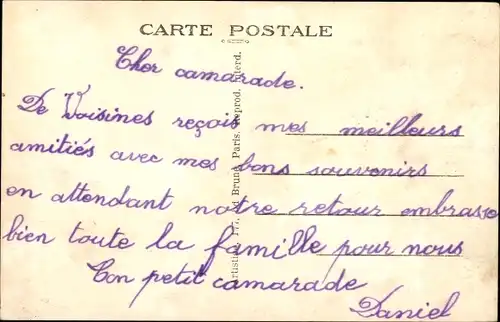 CARTE POSTALE
Cher camarade.
De Voisines reçois mes meilleurs
amitiés avec mes bons souvenirs
en attendant notre retour embrasse
bien toute la famille pour nous
Ton petit camarade
Daniel
Bruno, Paris. Reprod. Interd.